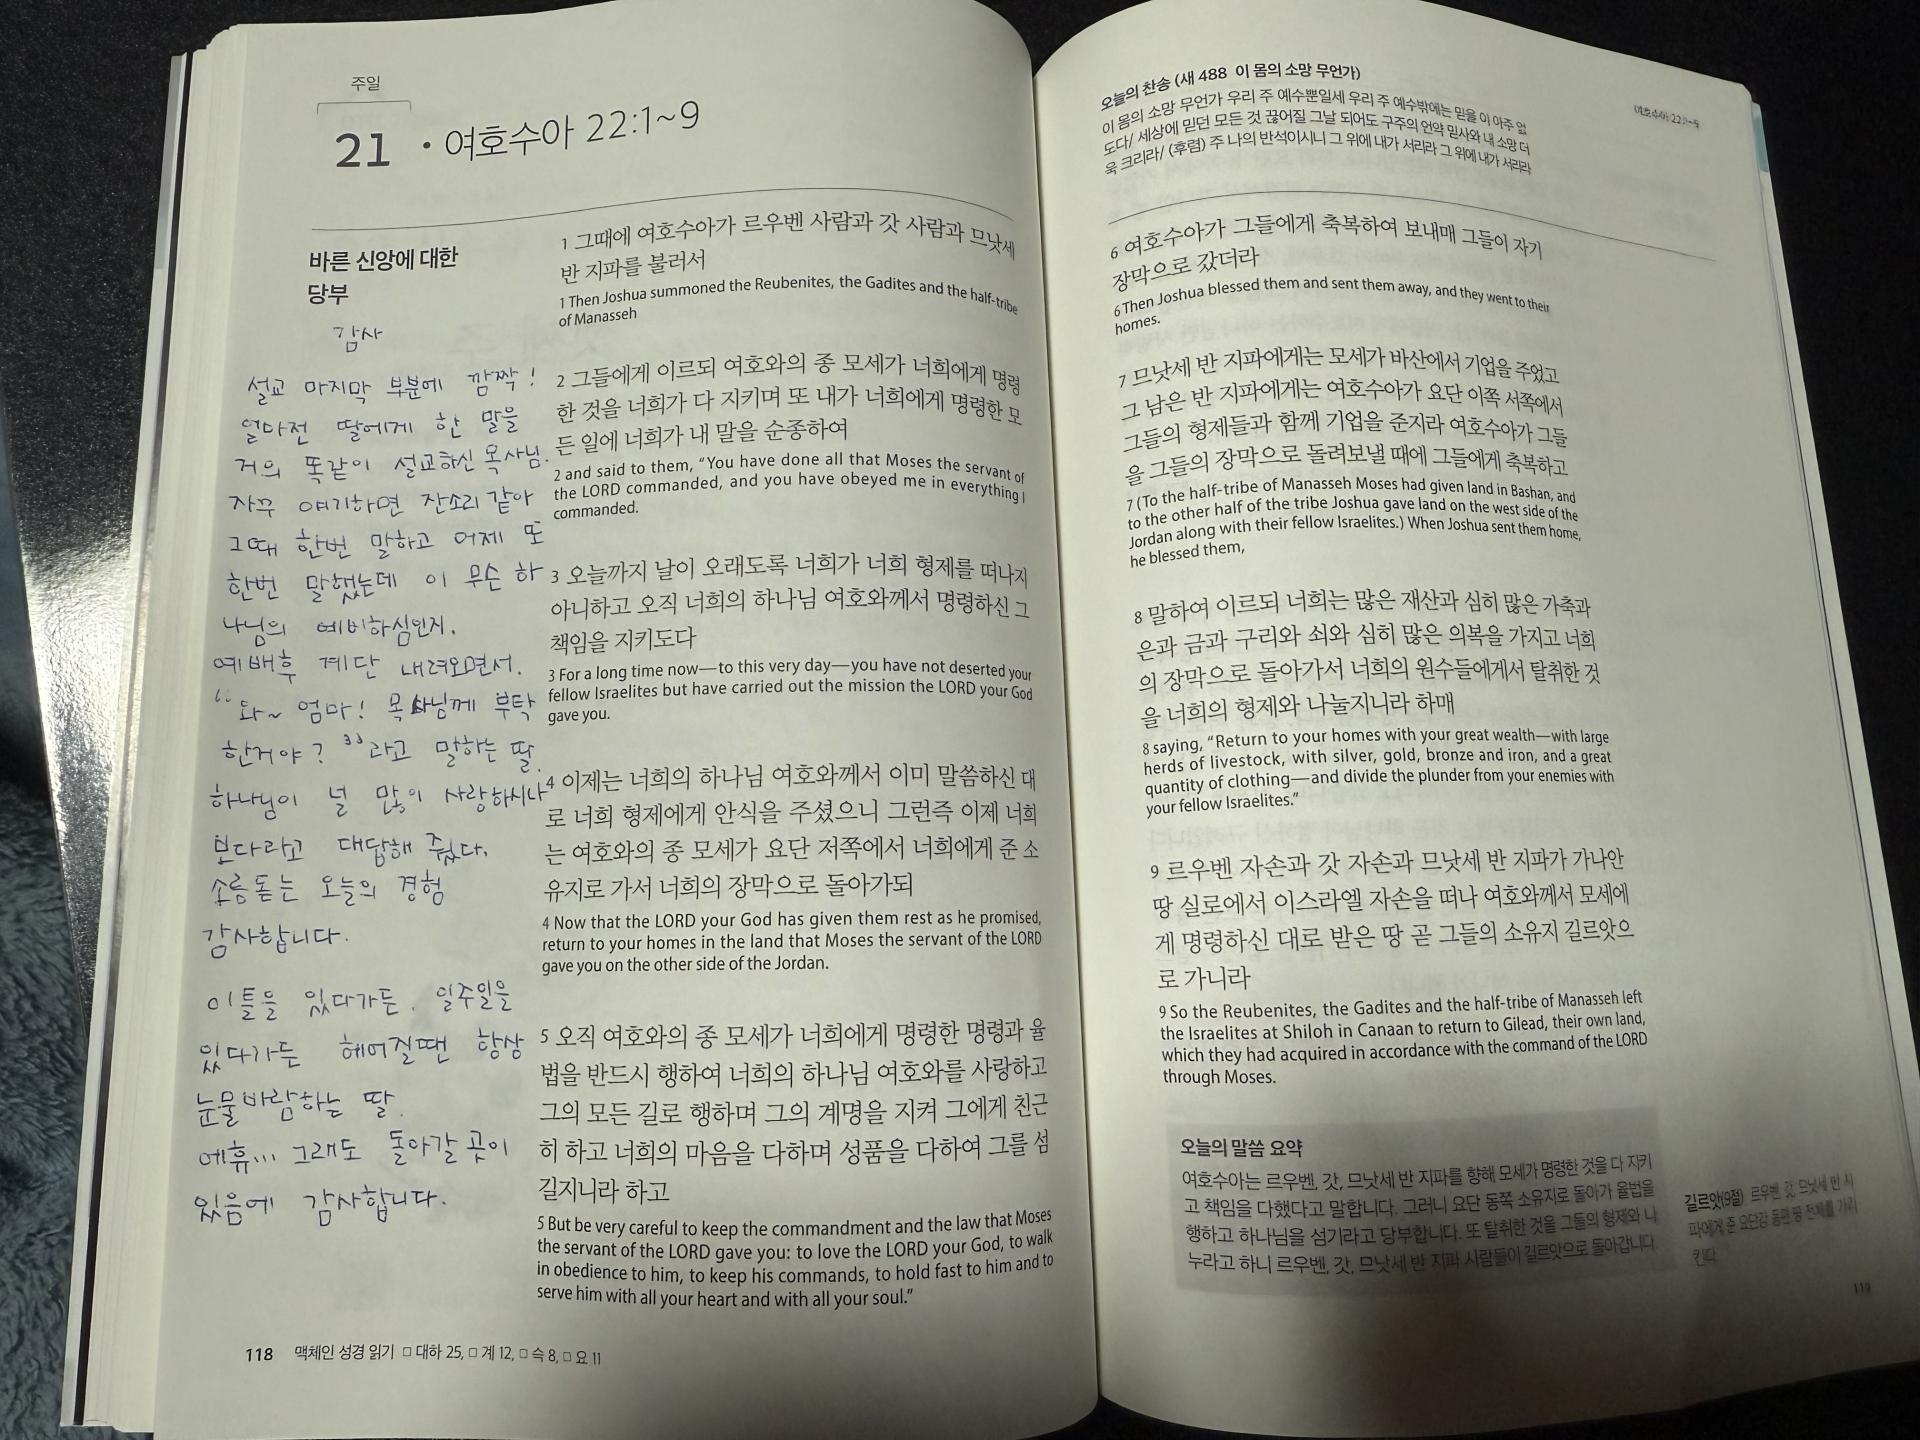 주일
21 · 여호수아 22:1~9
바른 신앙에 대한
당부
감사
설교 마지막 부분에 깜짝!
얼마전 딸에게 한 말을
거의 똑같이 설교하신 목사님.
자꾸 얘기하면 잔소리 같아
그때 한번 말하고 어제 또
한번 말했는데 이 무슨 하
나님의 예비하심인지.
예배후 계단 내려오면서.
"와~ 엄마! 목사님께 부탁
한거야?"라고 말하는 딸.
하나님이 널 많이 사랑하시나
보다라고 대답해 줬다.
소름돋는 오늘의 경험
감사합니다.
이틀을 있다가든. 일주일을
있다가든 헤어질땐 항상
눈물바람하는 딸.
에휴... 그래도 돌아갈 곳이
있음에 감사합니다.
1 그때에 여호수아가 르우벤 사람과 갓 사람과 므낫세
반 지파를 불러서
1 Then Joshua summoned the Reubenites, the Gadites and the half-tribe
of Manasseh
2 그들에게 이르되 여호와의 종 모세가 너희에게 명령
한 것을 너희가 다 지키며 또 내가 너희에게 명령한 모
든 일에 너희가 내 말을 순종하여
2 and said to them, “You have done all that Moses the servant of
the LORD commanded, and you have obeyed me in everything I
commanded.
3 오늘까지 날이 오래도록 너희가 너희 형제를 떠나지
아니하고 오직 너희의 하나님 여호와께서 명령하신 그
책임을 지키도다
3 For a long time now—to this very day—you have not deserted your
fellow Israelites but have carried out the mission the LORD your God
gave you.
4 이제는 너희의 하나님 여호와께서 이미 말씀하신 대
로 너희 형제에게 안식을 주셨으니 그런즉 이제 너희
는 여호와의 종 모세가 요단 저쪽에서 너희에게 준 소
유지로 가서 너희의 장막으로 돌아가되
4 Now that the LORD your God has given them rest as he promised,
return to your homes in the land that Moses the servant of the LORD
gave you on the other side of the Jordan.
5 오직 여호와의 종 모세가 너희에게 명령한 명령과 율
법을 반드시 행하여 너희의 하나님 여호와를 사랑하고
그의 모든 길로 행하며 그의 계명을 지켜 그에게 친근
히 하고 너희의 마음을 다하며 성품을 다하여 그를 섬
길지니라 하고
5 But be very careful to keep the commandment and the law that Moses
the servant of the LORD gave you: to love the LORD your God, to walk
in obedience to him, to keep his commands, to hold fast to him and to
serve him with all your heart and with all your soul.”
118 맥체인 성경 읽기 □ 대하 25, □ 계 12, □ 슥 8, □ 요 11
오늘의 찬송 (새 488 이 몸의 소망 무언가)
이 몸의 소망 무언가 우리 주 예수뿐일세 우리 주 예수밖에는 믿을 이 아주 없
도다/ 세상에 믿던 모든 것 끊어질 그날 되어도 구주의 언약 믿사와 내 소망 더
욱 크리라/ (후렴) 주 나의 반석이시니 그 위에 내가 서리라 그 위에 내가 서리라
여호수아 22:1~9
6 여호수아가 그들에게 축복하여 보내매 그들이 자기
장막으로 갔더라
6 Then Joshua blessed them and sent them away, and they went to their
homes.
7 므낫세 반 지파에게는 모세가 바산에서 기업을 주었고
그 남은 반 지파에게는 여호수아가 요단 이쪽 서쪽에서
그들의 형제들과 함께 기업을 준지라 여호수아가 그들
을 그들의 장막으로 돌려보낼 때에 그들에게 축복하고
7 (To the half-tribe of Manasseh Moses had given land in Bashan, and
to the other half of the tribe Joshua gave land on the west side of the
Jordan along with their fellow Israelites.) When Joshua sent them home,
he blessed them,
8 말하여 이르되 너희는 많은 재산과 심히 많은 가축과
은과 금과 구리와 쇠와 심히 많은 의복을 가지고 너희
의 장막으로 돌아가서 너희의 원수들에게서 탈취한 것
을 너희의 형제와 나눌지니라 하매
8 saying, “Return to your homes with your great wealth—with large
herds of livestock, with silver, gold, bronze and iron, and a great
quantity of clothing—and divide the plunder from your enemies with
your fellow Israelites.”
9 르우벤 자손과 갓 자손과 므낫세 반 지파가 가나안
땅 실로에서 이스라엘 자손을 떠나 여호와께서 모세에
게 명령하신 대로 받은 땅 곧 그들의 소유지 길르앗으
로 가니라
9 So the Reubenites, the Gadites and the half-tribe of Manasseh left
the Israelites at Shiloh in Canaan to return to Gilead, their own land,
which they had acquired in accordance with the command of the LORD
through Moses.
오늘의 말씀 요약
여호수아는 르우벤, 갓, 므낫세 반 지파를 향해 모세가 명령한 것을 다 지키
고 책임을 다했다고 말합니다. 그러니 요단 동쪽 소유지로 돌아가 율법을
행하고 하나님을 섬기라고 당부합니다. 또 탈취한 것을 그들의 형제와 나
누라고 하니 르우벤, 갓, 므낫세 반 지파 사람들이 길르앗으로 돌아갑니다.
길르앗(9절) 르우벤, 갓, 므낫세 반 지
파에게 준 요단강 동편 땅 전체를 가리
킨다.
119